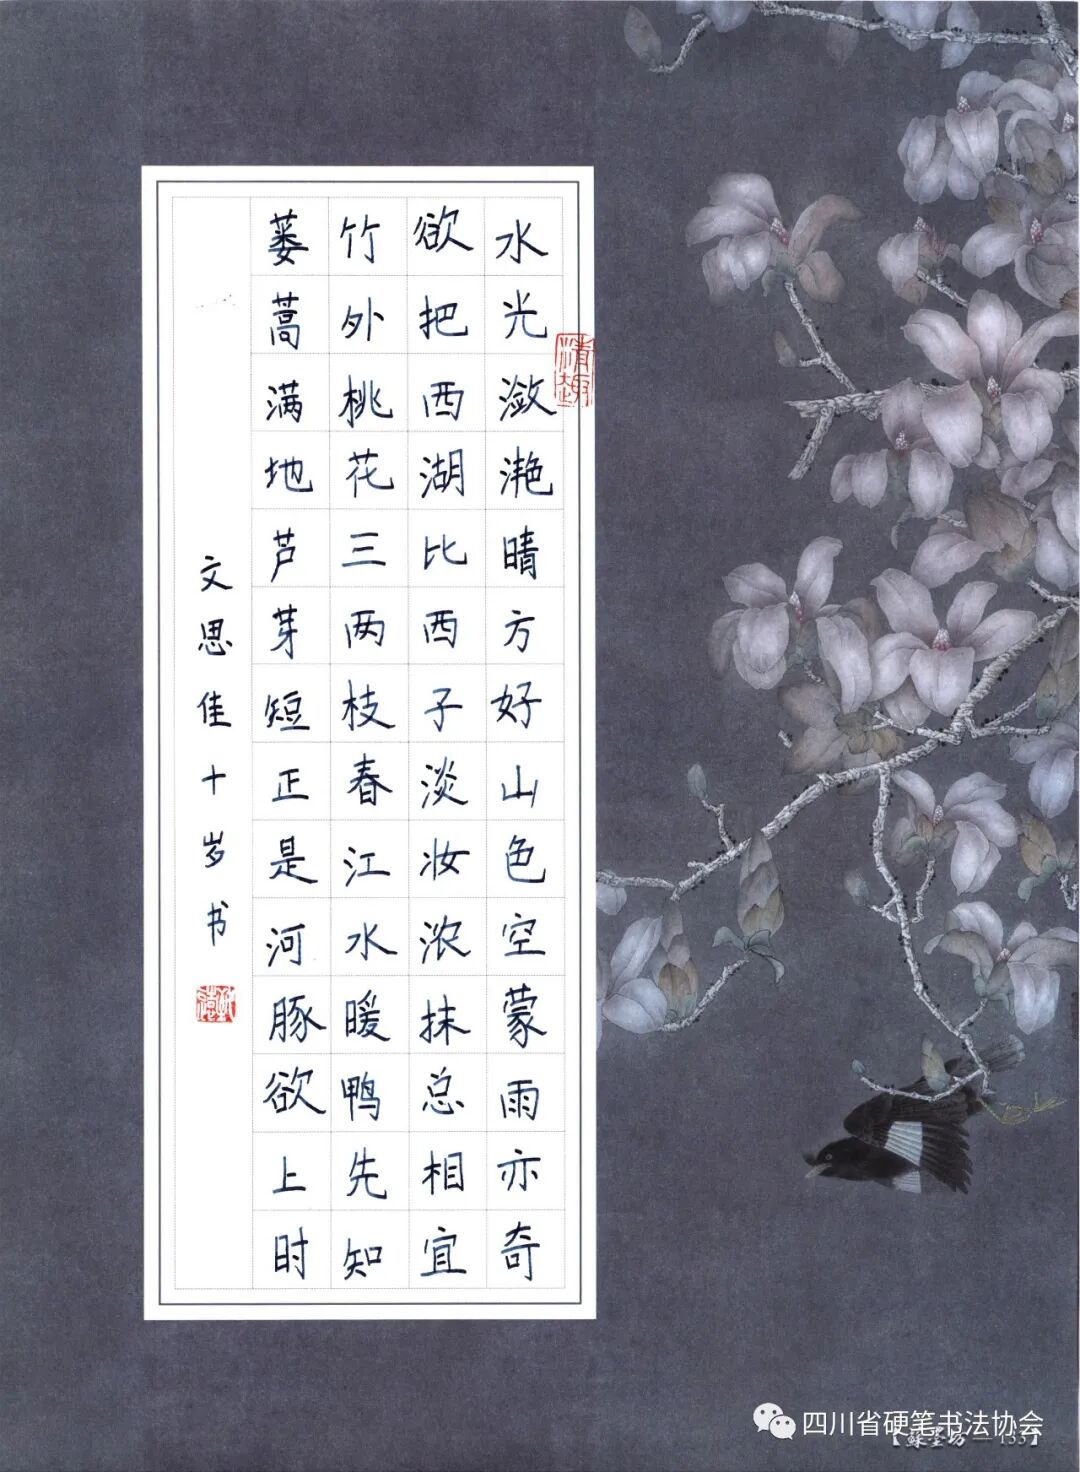 水光潋滟晴方好山色空蒙雨亦奇
欲把西湖比西子淡妆浓抹总相宜
竹外桃花三两枝春江水暖鸭先知
蒌蒿满地芦芽短正是河豚欲上时
文思佳十岁书
清趣
四川省硬笔书法协会